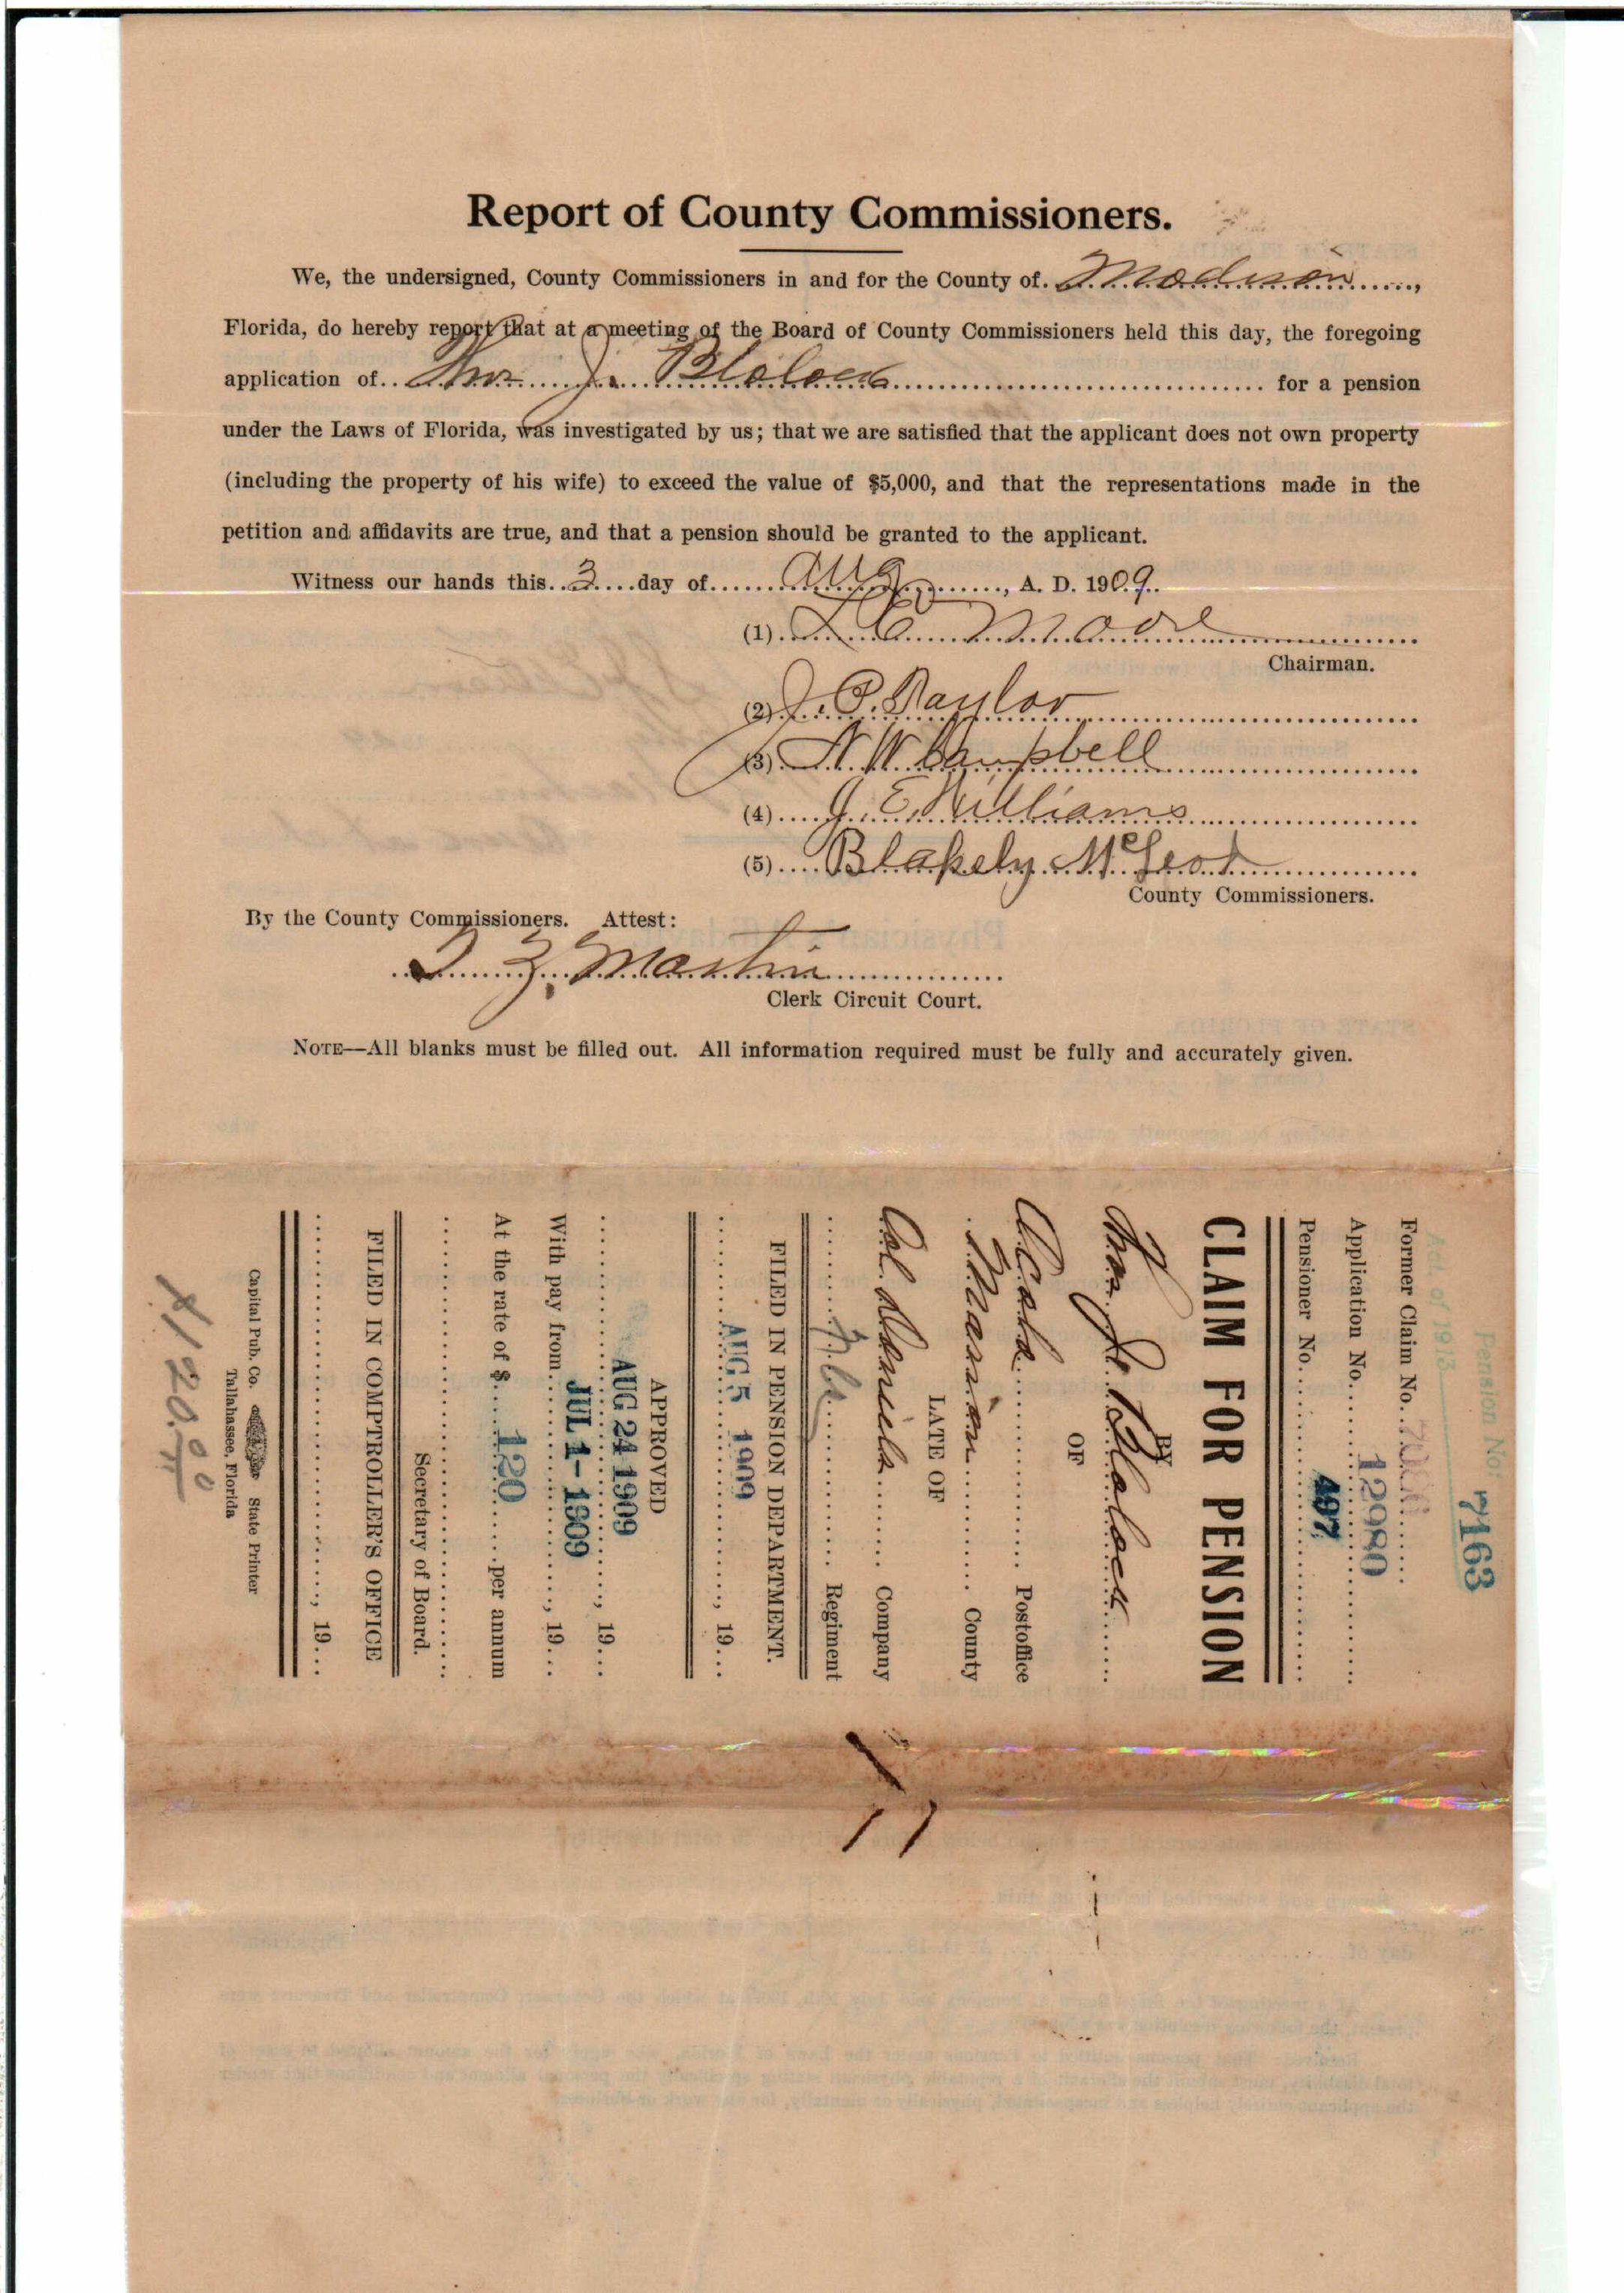 Report of County Commissioners.
We, the undersigned, County Commissioners in and for the County of. Madison......,
Florida, do hereby report that at a meeting of the Board of County Commissioners held this day, the foregoing
application of.. Thos J. Blalock ........ for a pension
under the Laws of Florida, was investigated by us; that we are satisfied that the applicant does not own property
(including the property of his wife) to exceed the value of $5,000, and that the representations made in the
petition and affidavits are true, and that a pension should be granted to the applicant.
Witness our hands this..3....day of......Aug......, A. D. 1909..
(1)... L E Moore ........
Chairman.
(2) J. P. Taylor ........
(3) N. W. Campbell ........
(4).... J. E. Williams ........
(5).... Blakely McLeod ........
County Commissioners.
By the County Commissioners. Attest:
.. Z. Martin ........
Clerk Circuit Court.
NOTE—All blanks must be filled out. All information required must be fully and accurately given.
Pension No. 7163
Act of 1913
Former Claim No...
Application No... 12980
Pensioner No... 497
CLAIM FOR PENSION
BY
Thos J. Blalock
OF
Ocala ........ Postoffice
Marion ........ County
LATE OF
Col Daniels ........ Company
........ Regiment
FILED IN PENSION DEPARTMENT.
AUG 5 1909 ........, 19...
APPROVED
AUG 24 1909 ........, 19...
With pay from JUL 1- 1909 ........, 19...
At the rate of $.... 120 ....per annum
Secretary of Board.
FILED IN COMPTROLLER'S OFFICE
........, 19...
Capital Pub. Co. State Printer
Tallahassee, Florida
$120.00